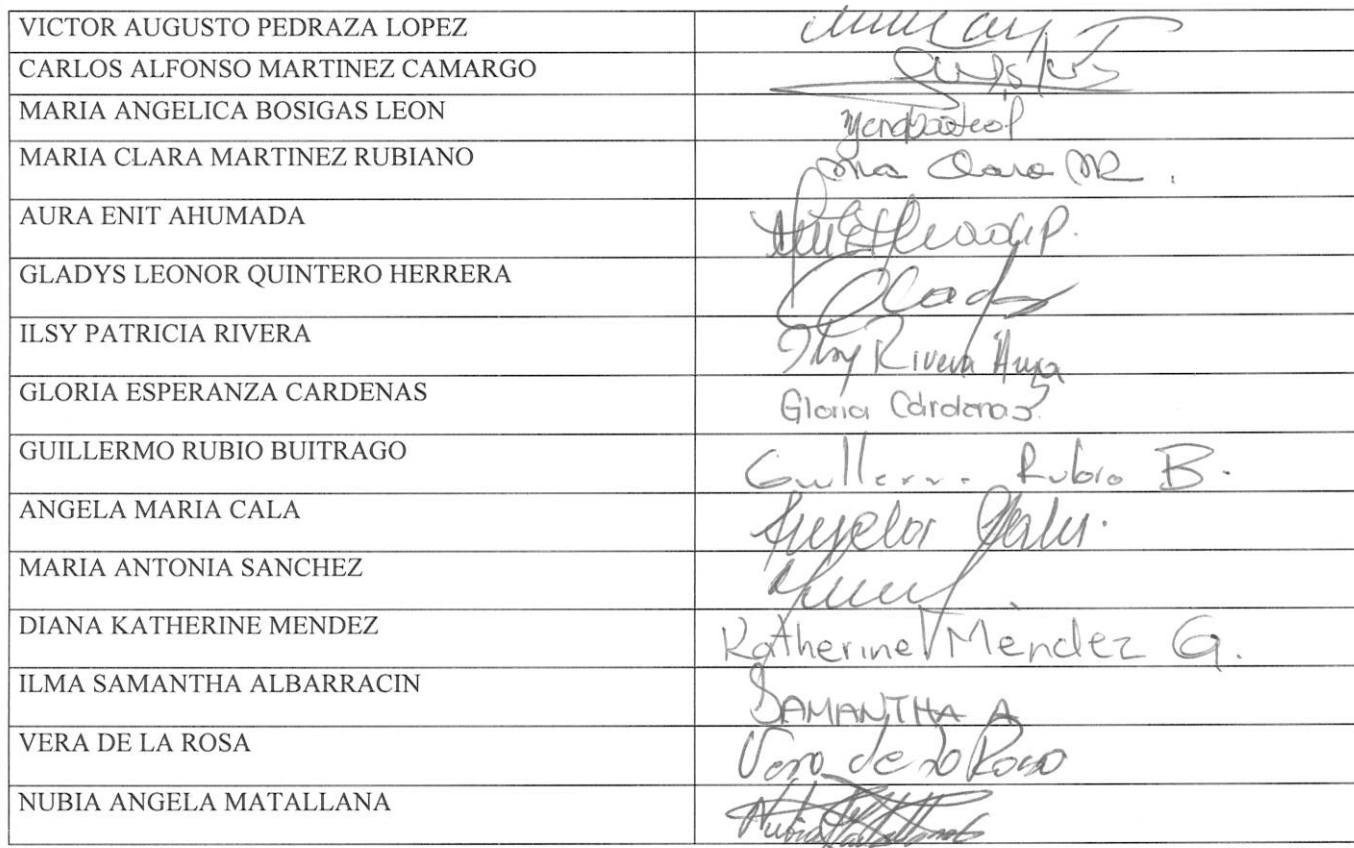 VICTOR AUGUSTO PEDRAZA LOPEZ
CARLOS ALFONSO MARTINEZ CAMARGO
MARIA ANGELICA BOSIGAS LEON
MARIA CLARA MARTINEZ RUBIANO Ma Clara MR.
AURA ENIT AHUMADA
GLADYS LEONOR QUINTERO HERRERA
ILSY PATRICIA RIVERA Ilsy Rivera
GLORIA ESPERANZA CARDENAS Gloria Cardenas
GUILLERMO RUBIO BUITRAGO Guillermo Rubio B.
ANGELA MARIA CALA Angela
MARIA ANTONIA SANCHEZ
DIANA KATHERINE MENDEZ Katherine Méndez G.
ILMA SAMANTHA ALBARRACIN SAMANTHA A
VERA DE LA ROSA Vera de la Rosa
NUBIA ANGELA MATALLANA Nubia